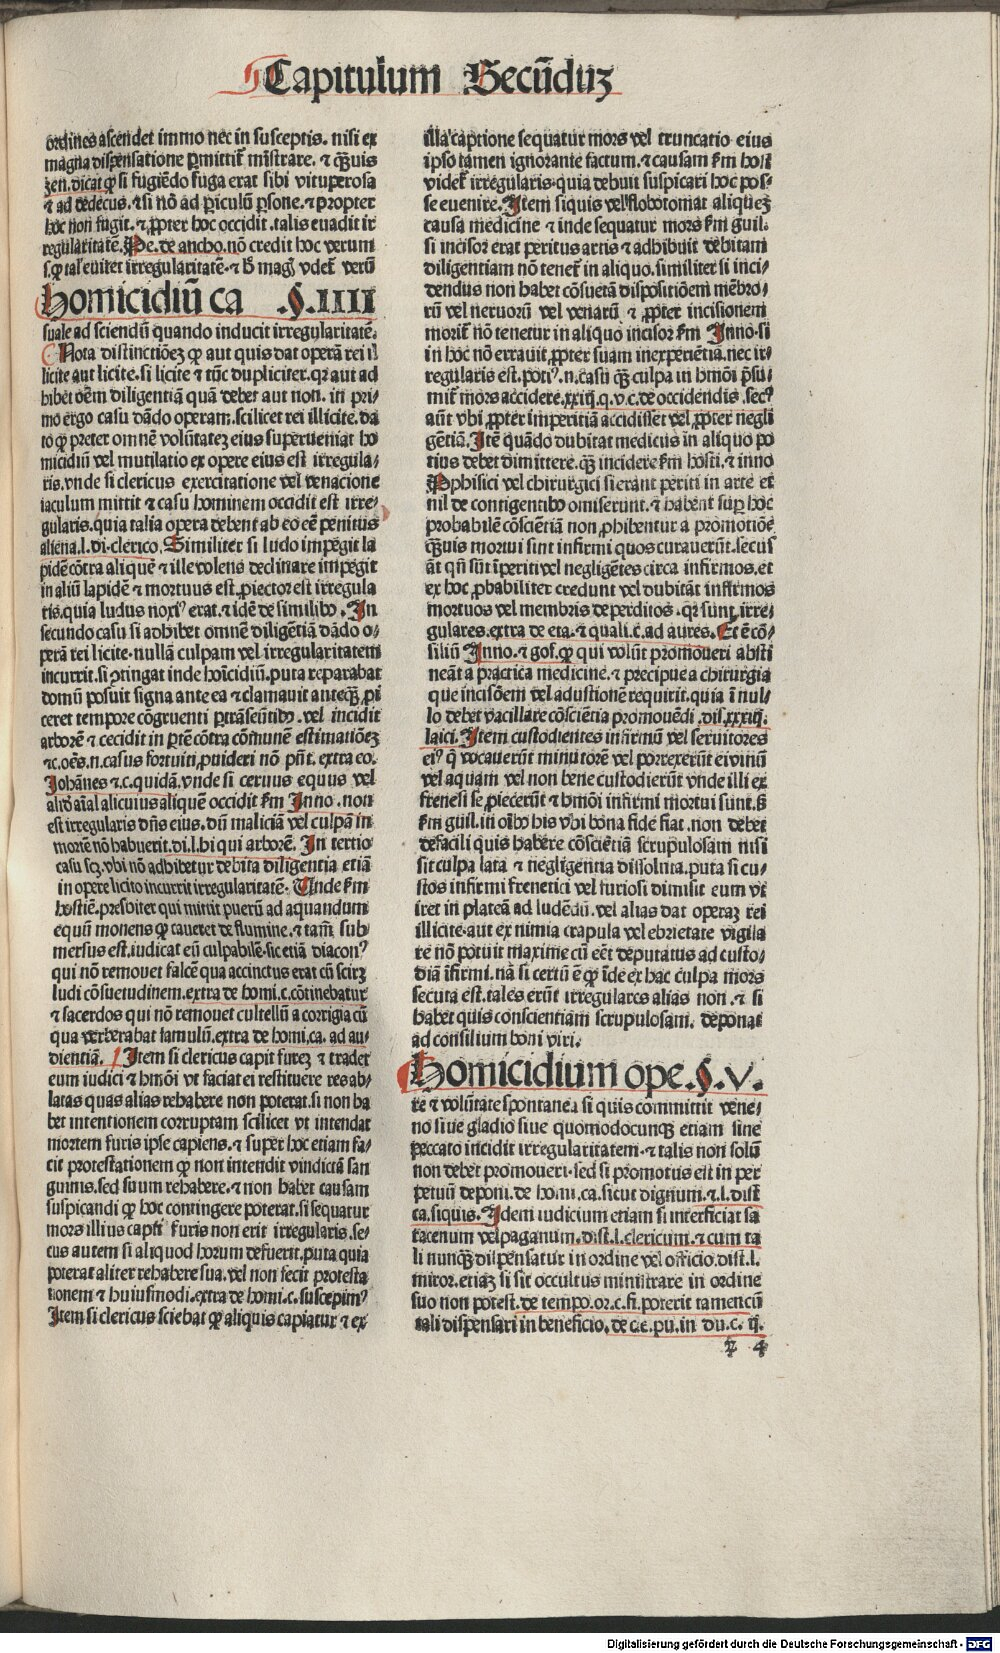 Capitulum Secũduꝫ
ordines ascendet immo nec in susceptis. nisi ex
magna dispensatione ꝑmittit᷑ mĩstrare. ⁊ qᷓuis
ꝫen. dicat ꝙ si fugiẽdo fuga erat sibi vituperosa
⁊ ad dedecus. ⁊ si nõ ad ꝑiculũ ꝑsone. ⁊ propter
hoc non fugit. ⁊ ꝓpter hoc occidit. talis euadit ir
regularitatẽ. Pe. de ancho. nõ credit hoc verum
s. ꝙ tal' euitet irregularitatẽ. ⁊ h̃ magꝭ vdet᷑ verũ
Homicidiũ ca §. IIII
suale ad sciendũ quando inducit irregularitatẽ.
Nota distinctiõeꝫ ꝙ aut quis dat operã rei il
licite aut licite. si licite ⁊ tũc dupliciter. qꝛ aut ad
hibet oẽm diligentiã quã debet aut non. in pri/
mo ergo casu dãdo operam. scilicet rei illicite. da
to ꝙ preter omnẽ volũtateꝫ eius superueniat ho
micidiũ vel mutilatio ex opere eius est irregula/
ris. vnde si clericus exercitatione vel venacione
iaculum mittit ⁊ casu hominem occidit est irre/
gularis. quia talia opera debent ab eo eẽ penitus
aliena. l. di. clerico. Similiter si ludo impẽgit la
pidẽ cõtra aliquẽ ⁊ ille volens declinare impẽgit
in aliũ lapidẽ ⁊ mortuus est. ꝓiector est irregula
ris. quia ludus noxi⁹ erat. ⁊ idẽ de similibꝰ. In
secundo casu si adhibet omnẽ diligẽtiã dãdo o/
perã rei licite. nullã culpam vel irregularitatem
incurrit. si ↄtingat inde hoĩcidiũ. puta reparabat
domũ posuit signa ante ea ⁊ clamauit anteqᷓꝫ ꝓi
ceret tempore cõgruenti ꝑtrãseũtibꝰ. vel incidit
arborẽ ⁊ cecidit in ꝑtẽ cõtra cõmunẽ estimatiõeꝫ
⁊c. oẽs. n. casus fortuiti ꝓuideri nõ pñt. extra eo.
Johãnes ⁊ c. quidã. vnde si ceruus equus vel
aliꝰ aĩal alicuius aliquẽ occidit ẜm Inno. non
est irregularis dñs eius. dũ maliciã vel culpã in
moriẽ nõ habuerit. di. l. hi qui arborẽ. In tertio
casu scꝫ. vbi nõ adhibetur debita diligentia etiã
in opere licito incurrit irregularitatẽ. Unde ẜm
hostiẽ. presbiter qui mittit puerũ ad aquandum
equũ monens ꝙ caueret de flumine. ⁊ tamẽ sub
mersus est. iudicat eũ culpabilẽ. sic etiã diacon⁹
qui nõ remouet falcẽ qua accinctus erat cũ sciret
ludi cõsuetudinem. extra de homi. c. cõtinebatur
⁊ sacerdos qui nõ remouet cultellũ a corrigia cũ
qua verberabat famulũ. extra de homi. ca. ad au/
dientiã. Item si clericus capit fureꝫ ⁊ tradet
eum iudici ⁊ hmõi vt faciat ei restituere res ab/
latas quas alias rehabere non poterat. si non ha
bet intentionem corruptam scilicet vt intendat
mortem furis ipse capiens. ⁊ super hoc etiam fa/
cit protestationem ꝙ non intendit vindictã san
guinis. sed suum rehabere. ⁊ non habet causam
suspicandi ꝙ hoc contingere poterat. si sequatur
mors illius capti furis non erit irregularis. se/
cus autem si aliquod horum defuerit. puta quia
poterat aliter rehabere sua. vel non fecit protesta
tionem ⁊ huiusmodi. extra de homi. c. suscepim⁹
Item si clericus sciebat ꝙ aliquis capiatur ⁊ ex
illa captione sequatur mors vel truncatio eius
ipso tamen ignorante factum. ⁊ causam ẜm hosti
videt᷑ irregularis. quia debuit suspicari hoc pos/
se euenire. Item si quis vel flobotomat aliqueꝫ
causa medicine ⁊ inde sequatur mors ẜm guil.
si incisor erat peritus artis ⁊ adhibuit debitam
diligentiam nõ tenet᷑ in aliquo. similiter si inci/
dendus non habet cõsuetã dispositiõem mẽbro/
rũ vel neruorũ vel venarũ ⁊ ꝓpter incisionem
morit᷑ nõ tenetur in aliquo incisor ẜm Inno. si
in hoc nõ errauit ꝓpter suam inexperiẽtiã. nec ir/
regularis est. poti⁹. n. casu qᷓꝫ culpa in hmõi p̃su/
mit᷑ mors accidere. xxiij. q. v. c. de occidendis. sec⁹
aũt vbi ꝓpter imperitiã accidisset vel ꝓpter negli
gẽtiã. Itẽ quãdo dubitat medicus in aliquo po
tius debet dimittere. qᷓꝫ incidere ẜm hosti. ⁊ inno
Phisici vel chirurgici si erant periti in arte et
nil de contigentibꝰ omiserunt. ⁊ habent suꝑ hoc
probabilẽ cõsciẽtiã non ꝓhibentur a promotiõe
qᷓuis mortui sint infirmi quos curauerũt. secus
aũt qñ sũt ĩperiti vel negligẽtes circa infirmos. et
ex hoc ꝓbabiliter credunt vel dubitãt infirmos
mortuos vel membris deperditos. qꝛ sunt irre/
gulares. extra de eta. ⁊ quali. c. ad aures. Et ẽ cõ/
siliũ Inno. ⁊ gof. ꝙ qui volũt promoueri absti
neãt a practica medicine. ⁊ precipue a chirurgia
que incisiõem vel adustionẽ requirit. quia ĩ nul/
lo debet vacillare cõsciẽtia promouẽdi. dis. xxxiij.
laici. Item custodientes infirmũ vel seruitores
ei⁹ q̃ vocauerũt minutorẽ vel porrexerũt ei vinũ
vel aquam vel non bene custodierũt vnde illi ex
frenesi se ꝓiecerũt ⁊ hmõi infirmi mortui sunt. ß
ẜm guil. in oĩbꝰ his vbi bona fide fiat. non debet
defacili quis habere cõsciẽtiã scrupulosam nisi
sit culpa lata ⁊ negligentia dissoluta. puta si cu/
stos infirmi frenetici vel furiosi dimisit eum vt
iret in plateã ad ludẽdũ. vel alias dat operaꝫ rei
illicite. aut ex nimia crapula vel ebrietate vigila
re nõ potuit maxime cũ eẽt deputatus ad custo/
diã ĩfirmi. nã si certũ ẽ ꝙ ĩde ex hac culpa mors
secuta est. tales erũt irregulares alias non. ⁊ si
habet quis conscientiam scrupulosam. deponat
ad consilium boni viri.
Homicidium ope. §. V.
re ⁊ volũtate spontanea si quis committit vene/
no siue gladio siue quomodocunqꝫ etiam sine
peccato incidit irregularitatem. ⁊ talis non solũ
non debet promoueri. sed si promotus est in per
petuũ deponi. de homi. ca. sicut dignum. ⁊. l. dist
ca. siquis. Idem iudicium etiam si interficiat sa
racenum vel paganum. dist. l. clericum. ⁊ cum ta
li nunqᷓꝫ dispensatur in ordine vel officio. dist. l.
miror. etiaꝫ si sit occultus ministrare in ordine
suo non potest. de tempo. or. c. fi. poterit tamen cũ
tali dispensari in beneficio. de c. e. pu. in du. c. ij.
Digitalisierung gefördert durch die Deutsche Forschungsgemeinschaft - DFG